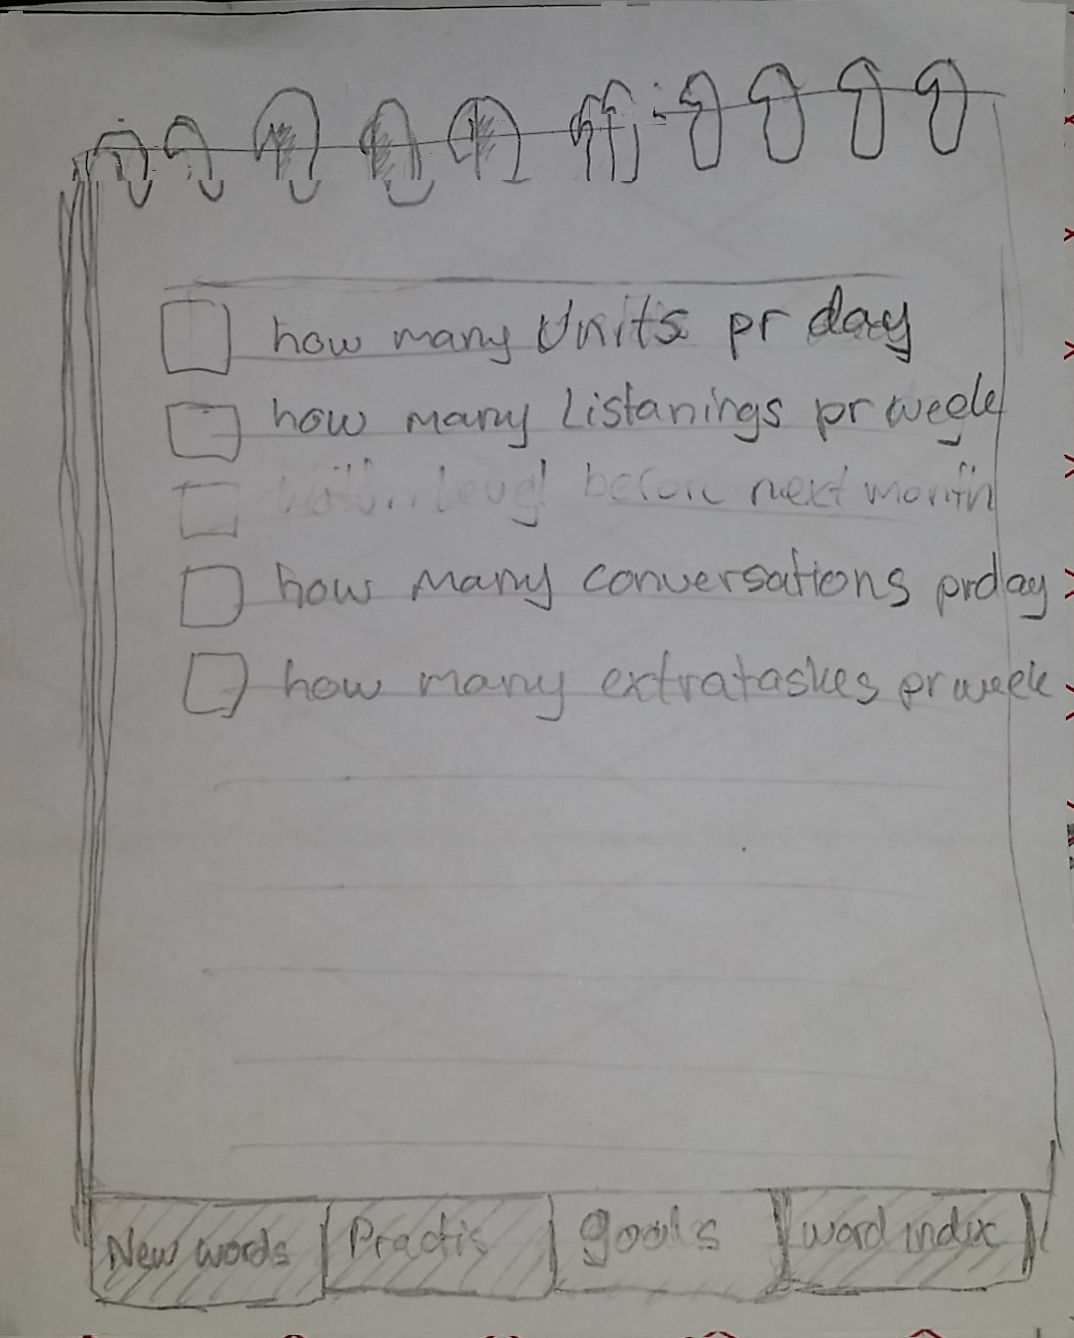 how many Units pr day
how many Listanings pr wegek
level before next month
how many conversations prday
how many extrataskes pr week
New words
Practis
goals
word index